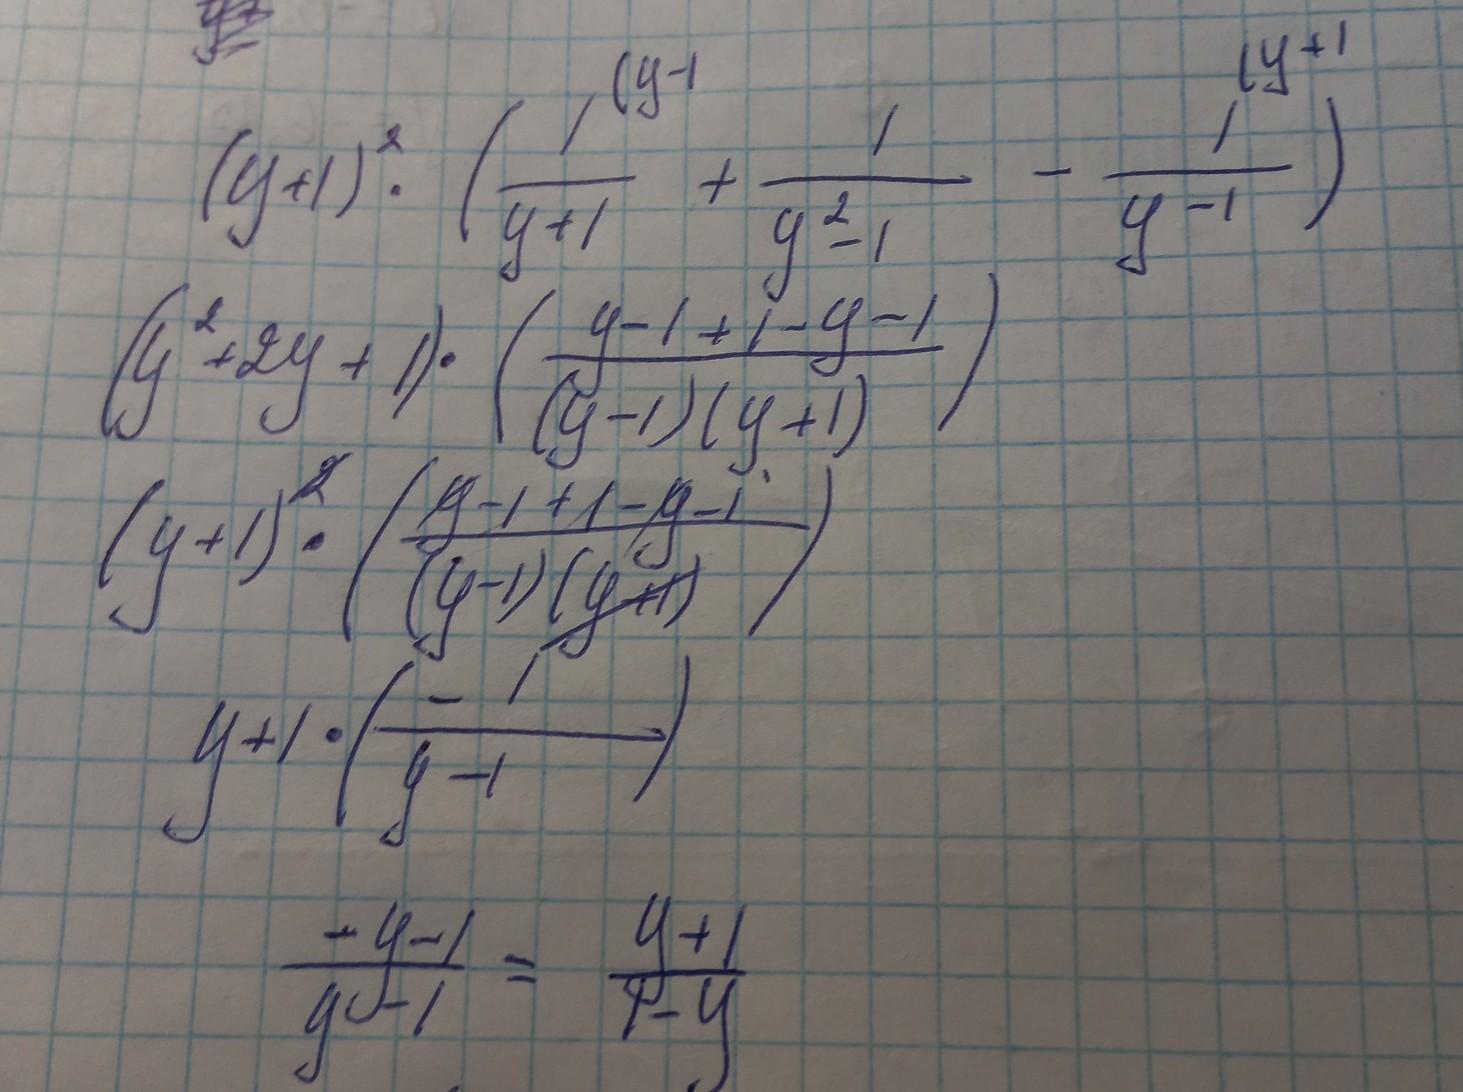 (y+1)² · ( 1/(y+1) (y-1 + 1/(y²-1) - 1/(y-1) (y+1 )
(y²+2y+1) · ( (y-1+1-y-1)/((y-1)(y+1)) )
(y+1)² · ( (y-1+1-y-1)/((y-1)(y+1)) )
y+1 · ( -1/(y-1) )
(-y-1)/(y-1) = (y+1)/(1-y)